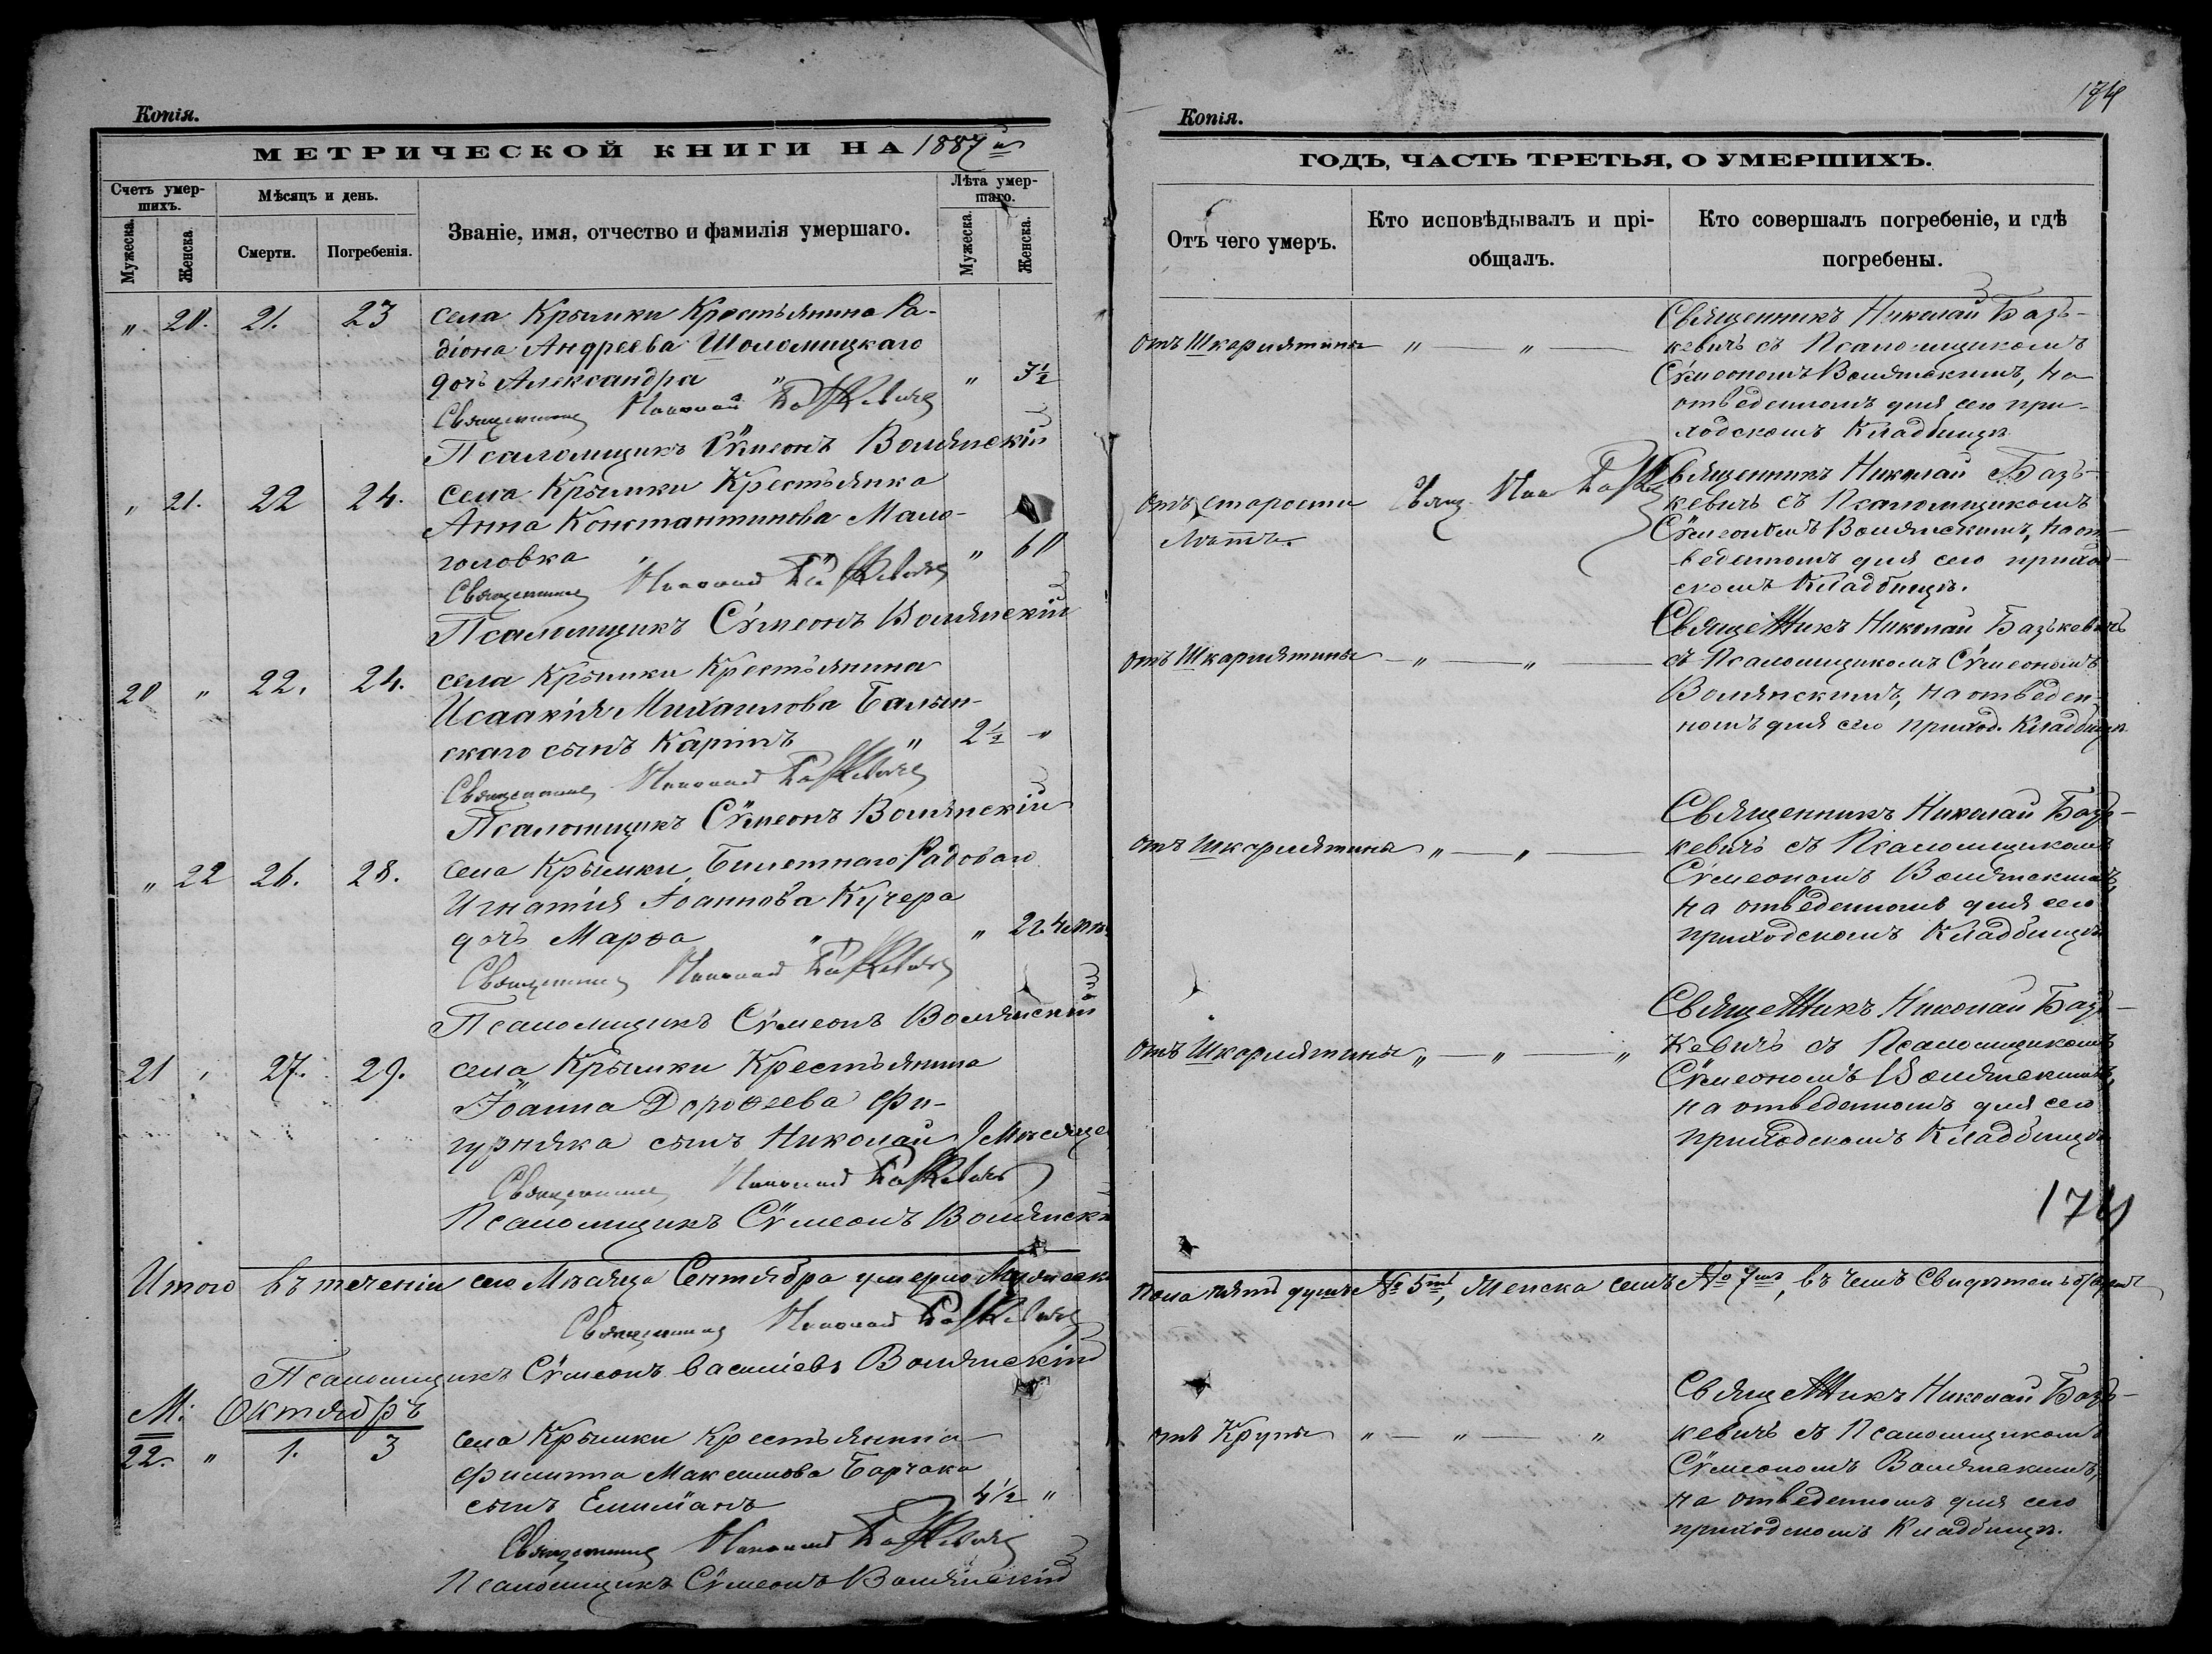 Копія.
МЕТРИЧЕСКОЙ КНИГИ НА 1887й
Счетъ умер-
шихъ.
Мужеска.
Женска.
Мѣсяцъ и день.
Смерти.
Погребенія.
Званіе, имя, отчество и фамилія умершаго.
Лѣта умер-
шаго.
Мужеска.
Женска.
" 20. 21. 23 села Крымки Крестьянина Ра-
діона Андреева Шоломицкаго
дочь Александра " " 3½
Священникъ Николай Базькевичъ
Псаломщикъ Сѵмеонъ Волянскій
" 21. 22 24. села Крымки Крестьянка
Анна Константинова Мало-
головка " " 60
Священникъ Николай Базькевичъ
Псаломщикъ Сѵмеонъ Волянскій
20 " 22. 24. села Крымки Крестьянина
Исаакія Михаилова Балын-
скаго сынъ Карпъ " 2½ "
Священникъ Николай Базькевичъ
Псаломщикъ Сѵмеонъ Волянскій
" 22 26. 28. села Крымки, Билетнаго Рядоваго
Игнатія Іоаннова Кучера
дочь Марѳа " " 2г.4мѣ.
Священникъ Николай Базькевичъ
Псаломщикъ Сѵмеонъ Волянскій
21 " 27. 29. села Крымки Крестьянина
Іоанна Дороѳеева Фи-
гурняка сынъ Николай 9 Мѣсяце
Священникъ Николай Базькевичъ
Псаломщикъ Сѵмеонъ Волянскі
Итого въ теченіи сего Мѣсяца Сентября умерло Мужеска
Священникъ Николай Базькевичъ
Псаломщикъ Сѵмеонъ Василіевъ Волянскій
М. Октябрь
22. " 1. 3 села Крымки Крестьянина
Филиппа Максимова Барчака
сынъ Емиліанъ 4½ "
Священникъ Николай Базькевичъ
Псаломщикъ Сѵмеонъ Волянскій
174
Копія.
ГОДЪ, ЧАСТЬ ТРЕТЬЯ, О УМЕРШИХЪ.
Отъ чего умеръ.
Кто исповѣдывалъ и прі-
общалъ.
Кто совершалъ погребеніе, и гдѣ
погребены.
отъ Шкарлятины " — " —
Священникъ Николай Базь-
кевичъ съ Псаломщикомъ
Сѵмеономъ Волянскимъ, на
отведенномъ для сего при-
ходскомъ Кладбищѣ
отъ старости
лѣтъ.
Свящ. Ник Базькев
Священникъ Николай Базь-
кевичъ съ Псаломщикомъ
Сѵмеономъ Волянскимъ, на от-
веденномъ для сего приход-
скомъ Кладбищѣ.
отъ Шкарлятины — " — " —
Священникъ Николай Базькевичъ
съ Псаломщикомъ Сѵмеономъ
Волянскимъ, на отведен-
номъ для сего приход. Кладбищѣ
отъ Шкарлятины " — " —
Священникъ Николай Базь-
кевичъ съ Псаломщикомъ
Сѵмеономъ Волянскимъ,
на отведенномъ для сего
приходскомъ Кладбищѣ
отъ Шкарлятины " — " — "
Священникъ Николай Базь-
кевичъ съ Псаломщикомъ
Сѵмеономъ Волянскимъ,
на отведенномъ для сего
приходскомъ Кладбищѣ
174
пола пять душъ № 5ть, Женска семь № 7мь, въ чемъ
отъ Крупы " — " — "
Священникъ Николай Базь-
кевичъ съ Псаломщикомъ
Сѵмеономъ Волянскимъ,
на отведенномъ для сего
приходскомъ Кладбищѣ.